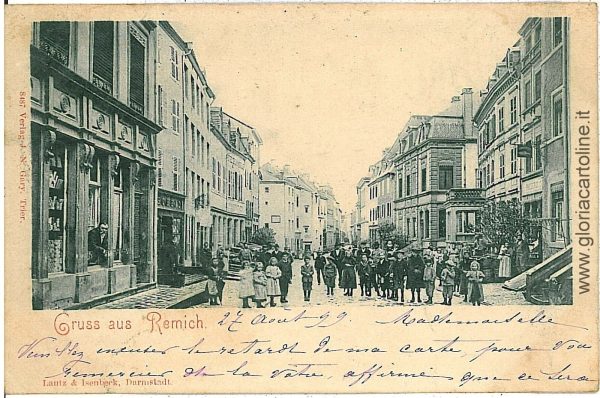 8487 Verlag J. N. Gary, Trier.
Gruss aus Remich. 27 Août 99 Mademoiselle
Veuillez excuser le retardt de ma carte, pour vou
remercier de la vôtre, affirmé que ce sera
Lautz & Isenbeck, Darmstadt.
www.gloriacartoline.it